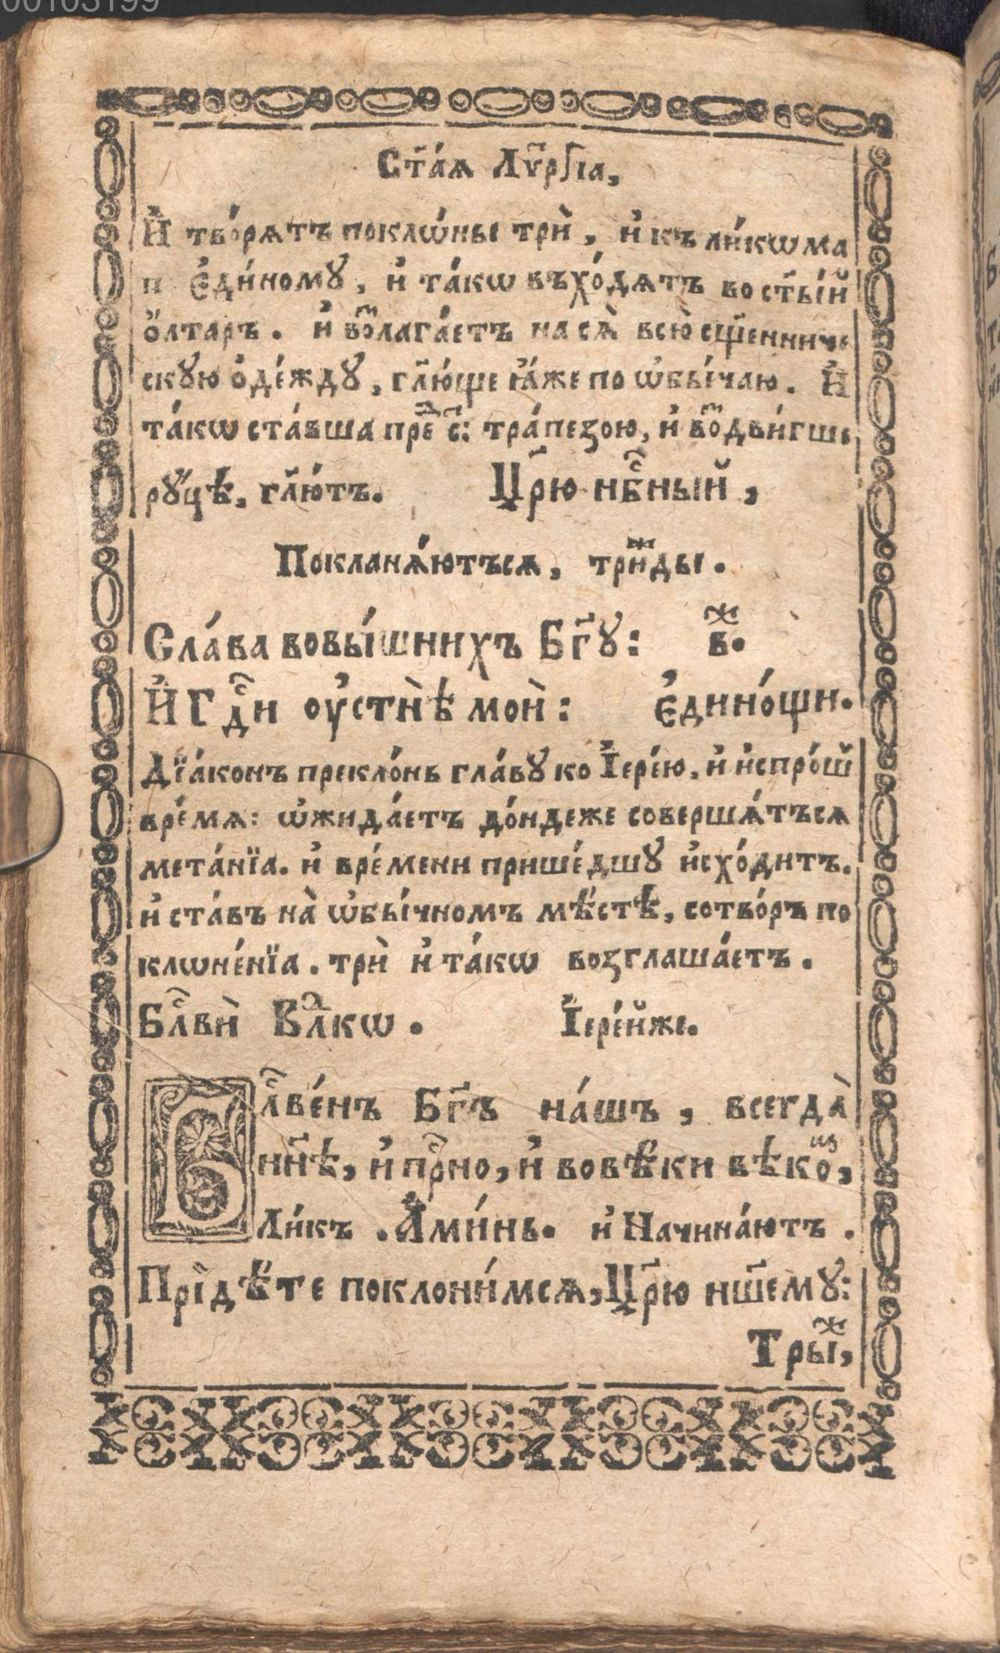 00103199
Ст҃а́ѧ Лѵⷬ҇гі́а,
И҆ тво́рѧтъ поклѡ́ны трѝ, и҆ къ ли́кѡма
п є҆ди́ному, и҆ та́кѡ въхо́дѧтъ во ст҃ы́й
ѻ҆лтаръ. и҆ воⷥлага́етъ на сѧ̀ всю̀ сщ҃енниче
скую ѻ҆де́жду, гл҃ю́ще ꙗ҆́же по ѡ҆бы́чаю. И҆
та́кѡ ста́вша преⷣ с҃: тра́пезою, и҆ воⷥдви́гше
ру́цѣ, гл҃ю́тъ. Цр҃ю нб҃ный,
Покланѧ́ютъсѧ, три́жⷣы.
Сла́ва вовы́шнихъ Бг҃у: в҃ⷤ.
И҆ Гдⷭ҇и оу҆стнѣ̀ мои̑: є҆дино́щи.
Дїа́конъ прекло́нь гла́ву ко І҆ере́ю, и҆ и҆спро́ш
вре́мѧ: ѡ҆жида́етъ до́ндеже соверша́тъсѧ
мета́нїа. и҆ вре́мени прише́дшу и҆схо́дитъ.
и҆ ста́въ на̀ ѡ҆бы́чномъ мѣ́стѣ, сотво́ръ по
клѡне́нїа. трѝ и҆ та́кѡ возглаша́етъ.
Бл҃вѝ Влⷣкѡ. І҆ере́йже.
Бл҃ве́нъ Бг҃ъ на́шъ, всегда̀
нн҃ѣ, и҆ прⷭ҇но, и҆ вовѣ́ки вѣкоⷡ,
Ли́къ. А҆ми́нь. и҆ Начина́ютъ.
Прїидѣ́те поклони́мсѧ, Цр҃ю нш҃ему:
Трыⷤ,